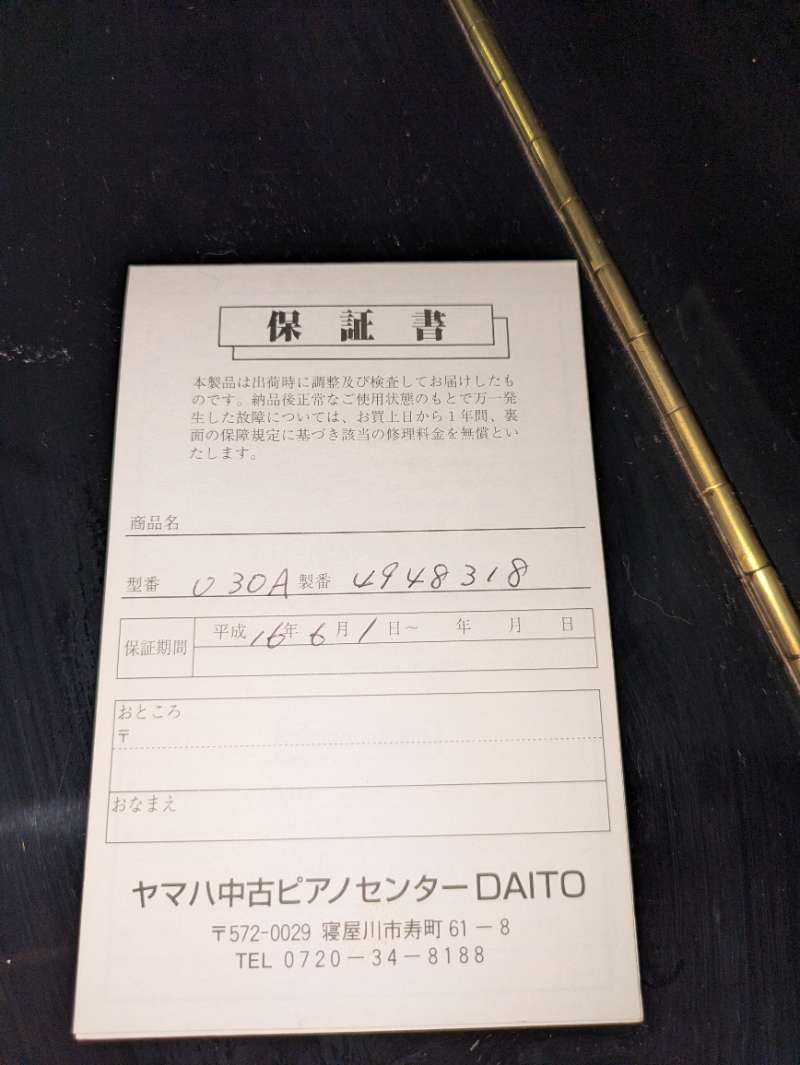 保証書
本製品は出荷時に調整及び検査してお届けしたも
のです。納品後正常なご使用状態のもとで万一発
生した故障については、お買上日から1年間、裏
面の保障規定に基づき該当の修理料金を無償とい
たします。
商品名
型番 U30A 製番 4948318
保証期間 平成 16年 6月 1日〜 年 月 日
おところ
〒
おなまえ
ヤマハ中古ピアノセンターDAITO
〒572-0029 寝屋川市寿町61-8
TEL 0720-34-8188